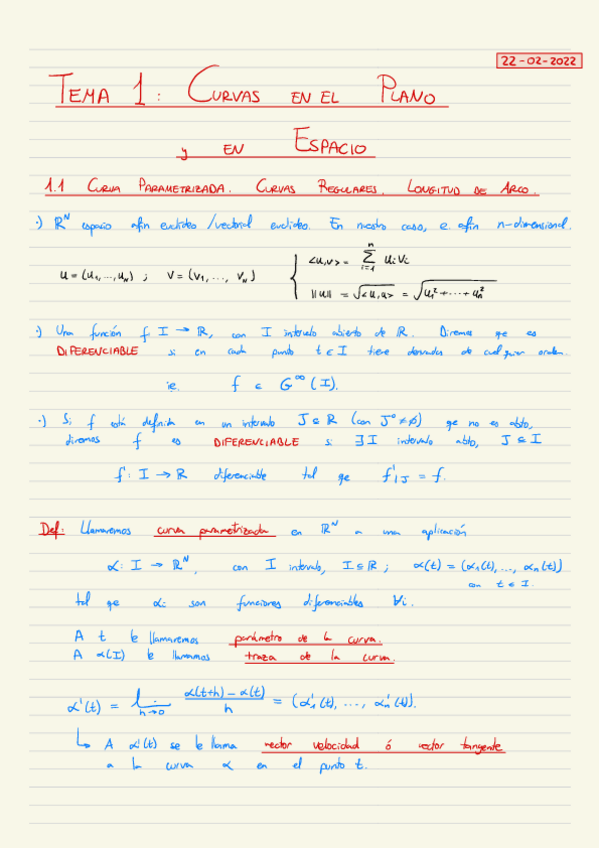 22-02-2022
TEMA 1: CURVAS EN EL PLANO
y EN ESPACIO
1.1 CURVA PARAMETRIZADA. CURVAS REGULARES. LONGITUD DE ARCO.
·) ℝᴺ espacio afín euclídeo /vectorial euclídeo. En nuestro caso, e. afín n-dimensional.
u = (u₁, ..., uₙ) ; v = (v₁, ..., vₙ) { <u,v> = Σⁿᵢ₌₁ uᵢ vᵢ
||u|| = √<u,u> = √u₁² + ... + uₙ²
·) Una función f: I → ℝ, con I intervalo abierto de ℝ. Diremos que es
DIFERENCIABLE si en cada punto t ∈ I tiene derivadas de cualquier orden.
ie. f ∈ G^∞ (I).
·) Si f está definida en un intervalo J ⊆ ℝ (con J° ≠ ∅) que no es abto,
diremos f es DIFERENCIABLE si ∃ I intervalo abto, J ⊆ I
f': I → ℝ diferenciable tal que f'|J = f.
Def: Llamaremos curva parametrizada en ℝᴺ a una aplicación
α: I → ℝᴺ, con I intervalo, I ⊆ ℝ ; α(t) = (α₁(t), ..., αₙ(t))
con t ∈ I.
tal que αᵢ son funciones diferenciables ∀i.
A t le llamaremos parámetro de la curva.
A α(I) le llamamos traza de la curva.
α'(t) = lim h→0 α(t+h) - α(t) / h = (α'₁(t), ..., α'ₙ(t)).
↳ A α'(t) se le llama vector velocidad ó vector tangente
a la curva α en el punto t.